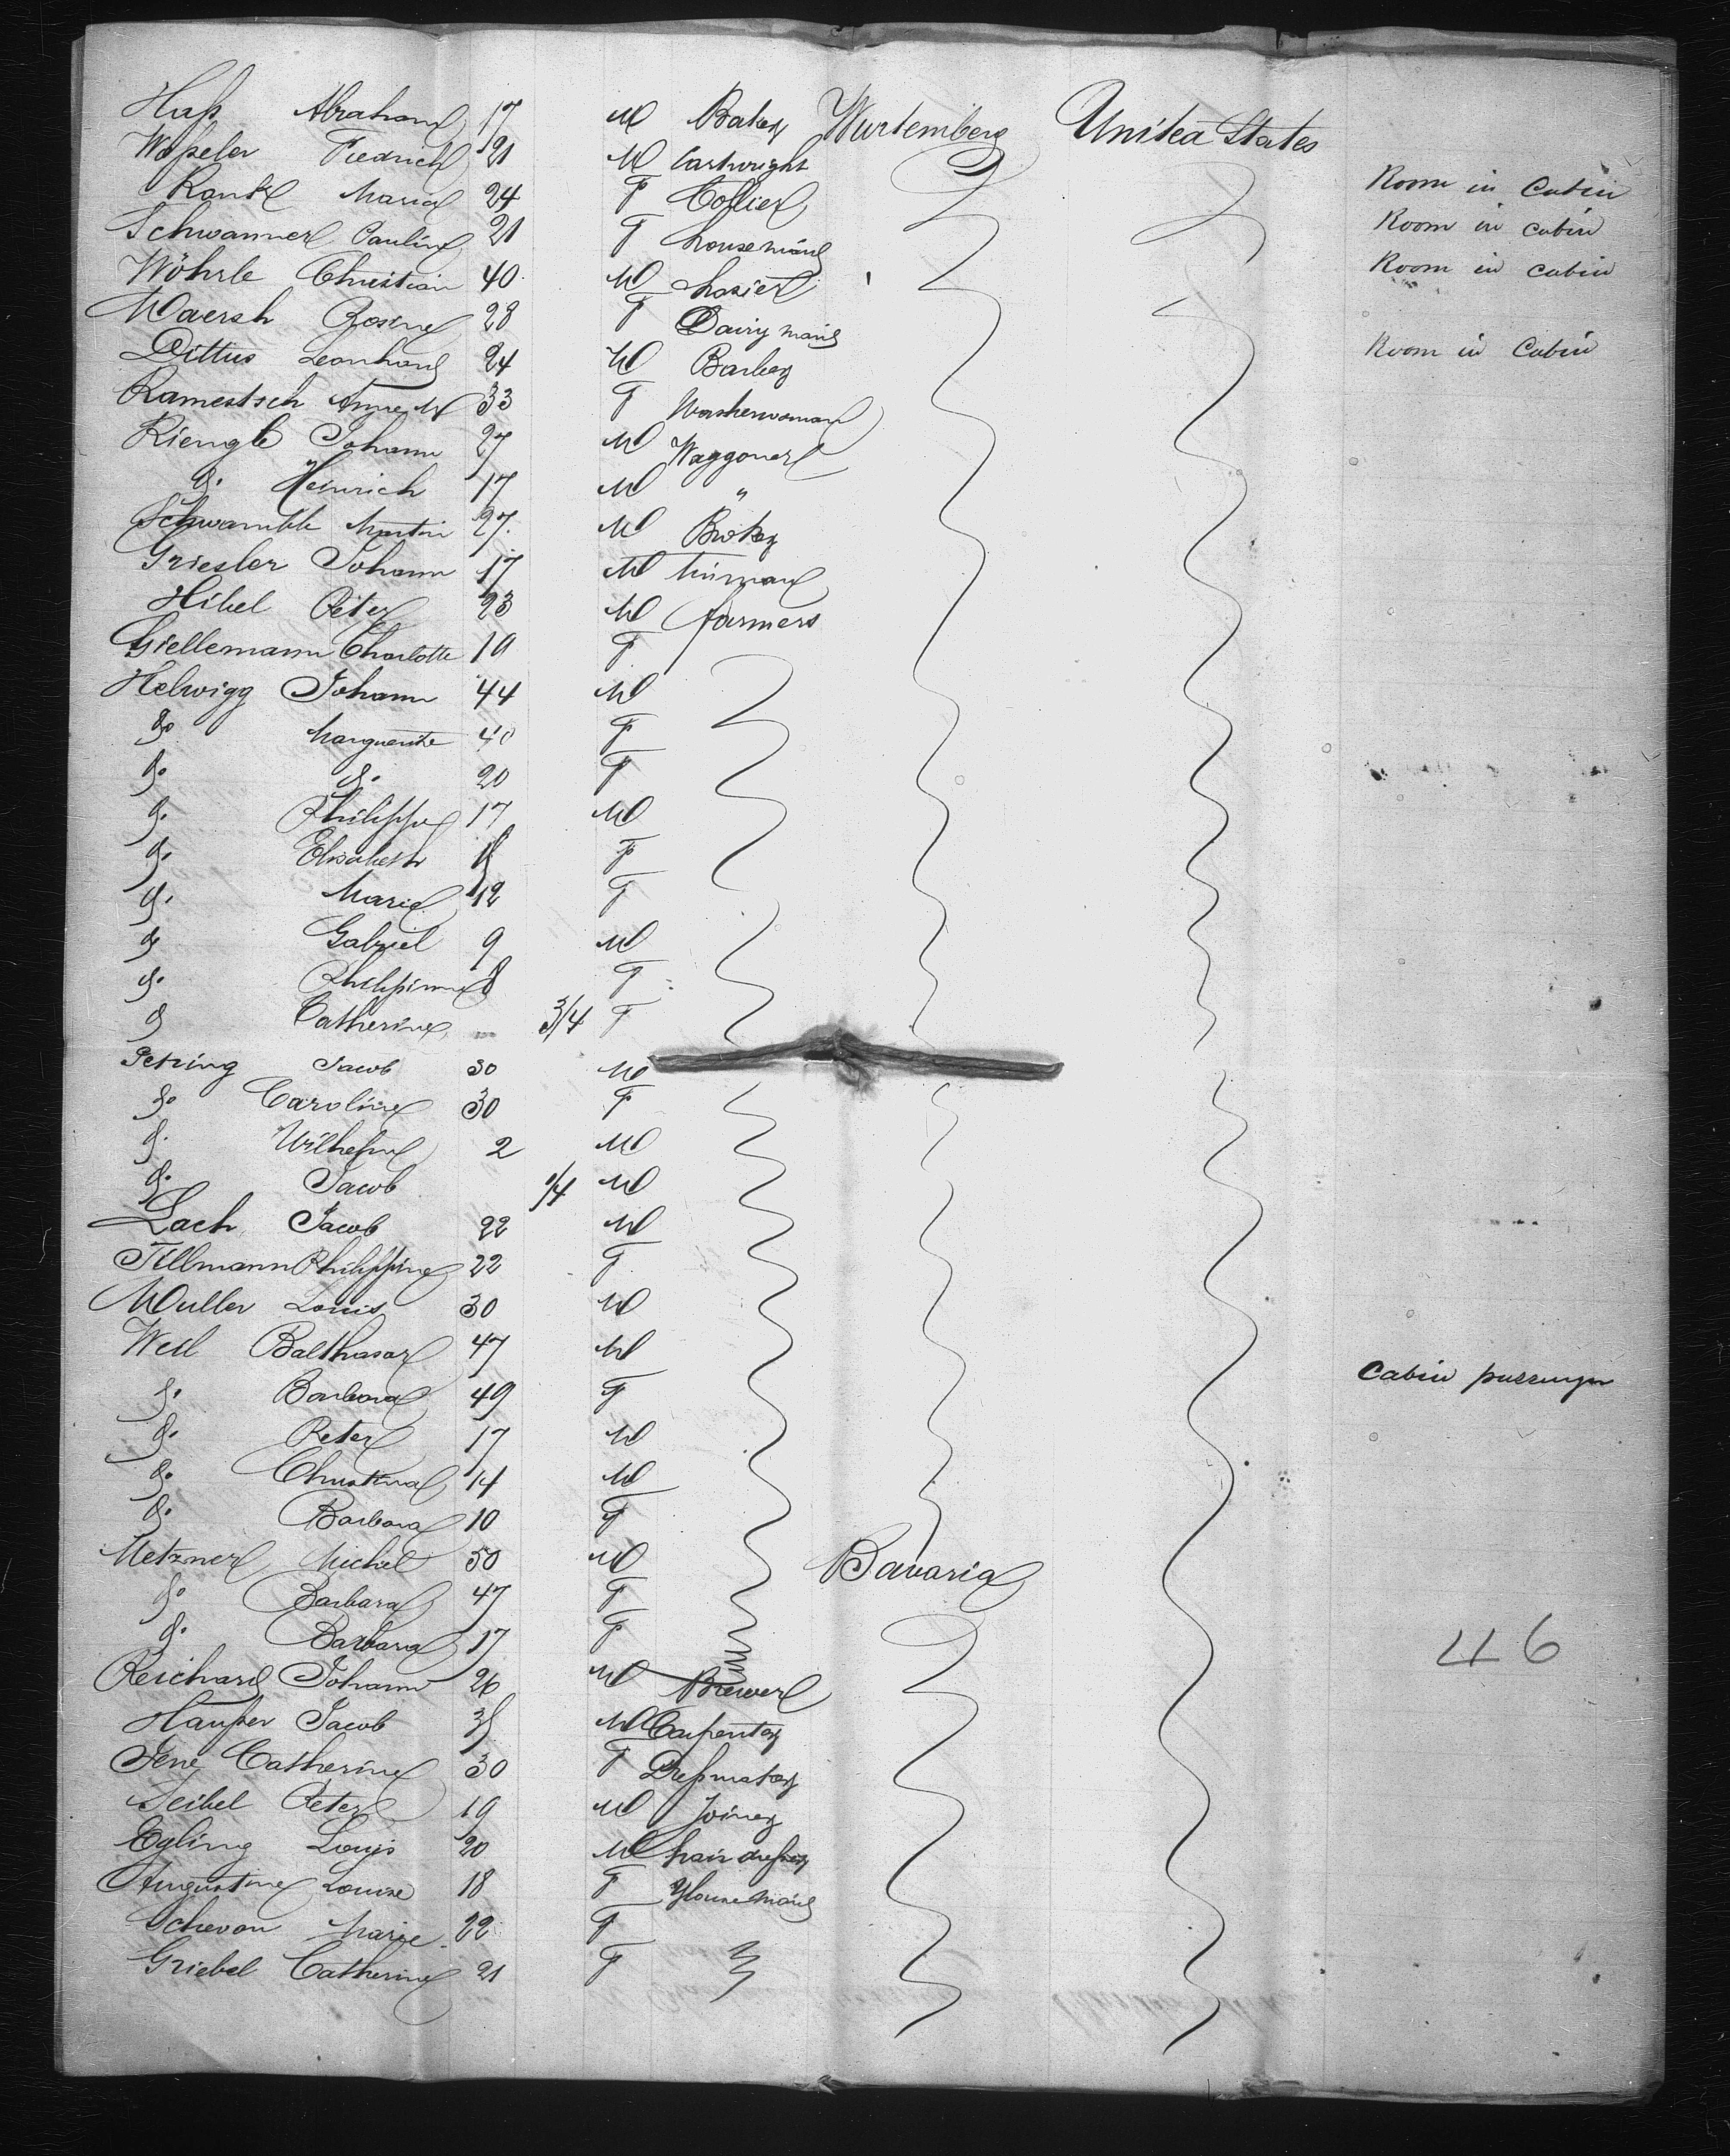 Haß Abraham 17 M Baker Wurtemberg United States
Waßeler Fiedrich 21 M Cartwright
Rank Maria 24 F Room in Cabin
Schwanner Pauline 21 F housemaid Room in cabin
Wöhrle Christian 40 M Room in cabin
Maersh Rosine 28 F Dairy maid
Dittus Leonhard 24 M Barber Room in Cabin
Ramestsch Anne M 33 F Washerwoman
Riengle Johann 27 M Waggoner
do Heinrich 17 M "
Schwamble Martin 27 M Broker
Griesler Johann 17 M
Hibel Peter 23 M farmers
Giellemann Charlotte 19 F
Helwigg Johann 44 M
do Marguerite 40 F
do do 20 F
do Philippe 17 M
do Elisabeth F
do Marie 12 F
do Gabriel 9 M
do Philippine 8 F
do Catherine 3/4 F
Petring Jacob 30 M
do Caroline 30 F
do Wilhelm 2 M
do Jacob 1/4 M
Lach Jacob 22 M
Tillmann Philippine 22 F
Muller Louis 30 M
Weil Balthasar 47 M
do Barbara 49 F Cabin passenger
do Peter 17 M
do Christina 14 M
do Barbara 10 F
Metzner Michel 50 M Bavaria
do Barbara 47 F
do Barbara 17 F
46
Reichard Johann 26 M Brewer
Haußer Jacob M Carpenter
Jene Catherine 30 F
Seibel Peter 19 M Joiner
Egling Louis 20 M hair dreßer
Augustine Louise 18 F Housemaid
Schevon Marie 22 F
Griebel Catherine 21 F